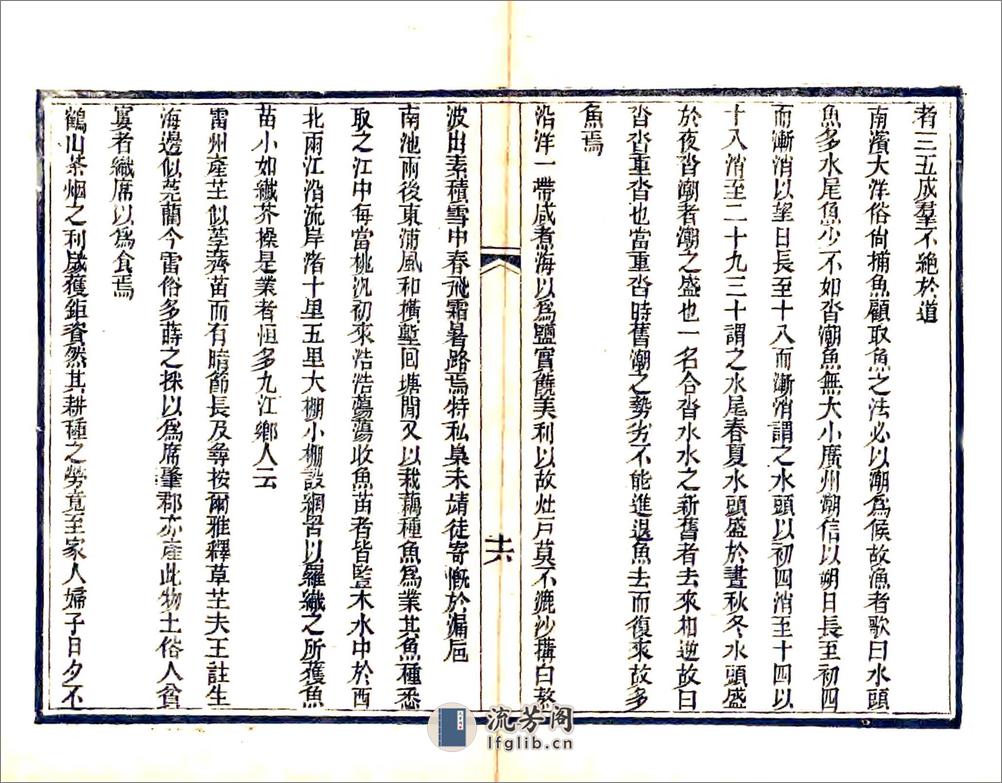 者三五成羣不絕於道
南濱大洋俗尙捕魚顧取魚之法必以潮爲候故漁者歌曰水頭
魚多水尾魚少不如沓潮魚無大小廣州潮信以朔日長至初四
而漸消以望日長至十八而漸消謂之水頭以初四消至十四以
十八消至二十九三十謂之水尾春夏水頭盛於晝秋冬水頭盛
於夜沓潮者潮之盛也一名合沓水水之新舊者去來相逆故曰
沓沓重沓也當重沓時舊潮之勢劣不能進退魚去而復來故多
魚焉
沿洋一帶咸煮海以爲鹽實饒美利以故灶戸莫不漉沙搆白熬
波出素積雪中春飛霜暑路焉特私梟未靖徒寄慨於漏巵
南池雨後東浦風和橫塹回塘閒又以栽藕種魚爲業其魚種悉
取之江中每當桃汛初來浩浩蕩蕩收魚苗者皆監木水中於西
北兩江沿流岸渚十里五里大棚小棚設網罟以羅織之所獲魚
苗小如纎芥操是業者恒多九江鄉人云
雷州產芏似荸薺苗而有暗節長及尋按爾雅釋草芏夫王註生
海邊似莞藺今雷俗多蒔之採以爲席肇郡亦產此物土俗人貧
窶者織席以爲食焉
鶴山茶烟之利歲獲鉅資然其耕種之勞竟至家人婦子日夕不
十六
流芳阁
lfglib.cn